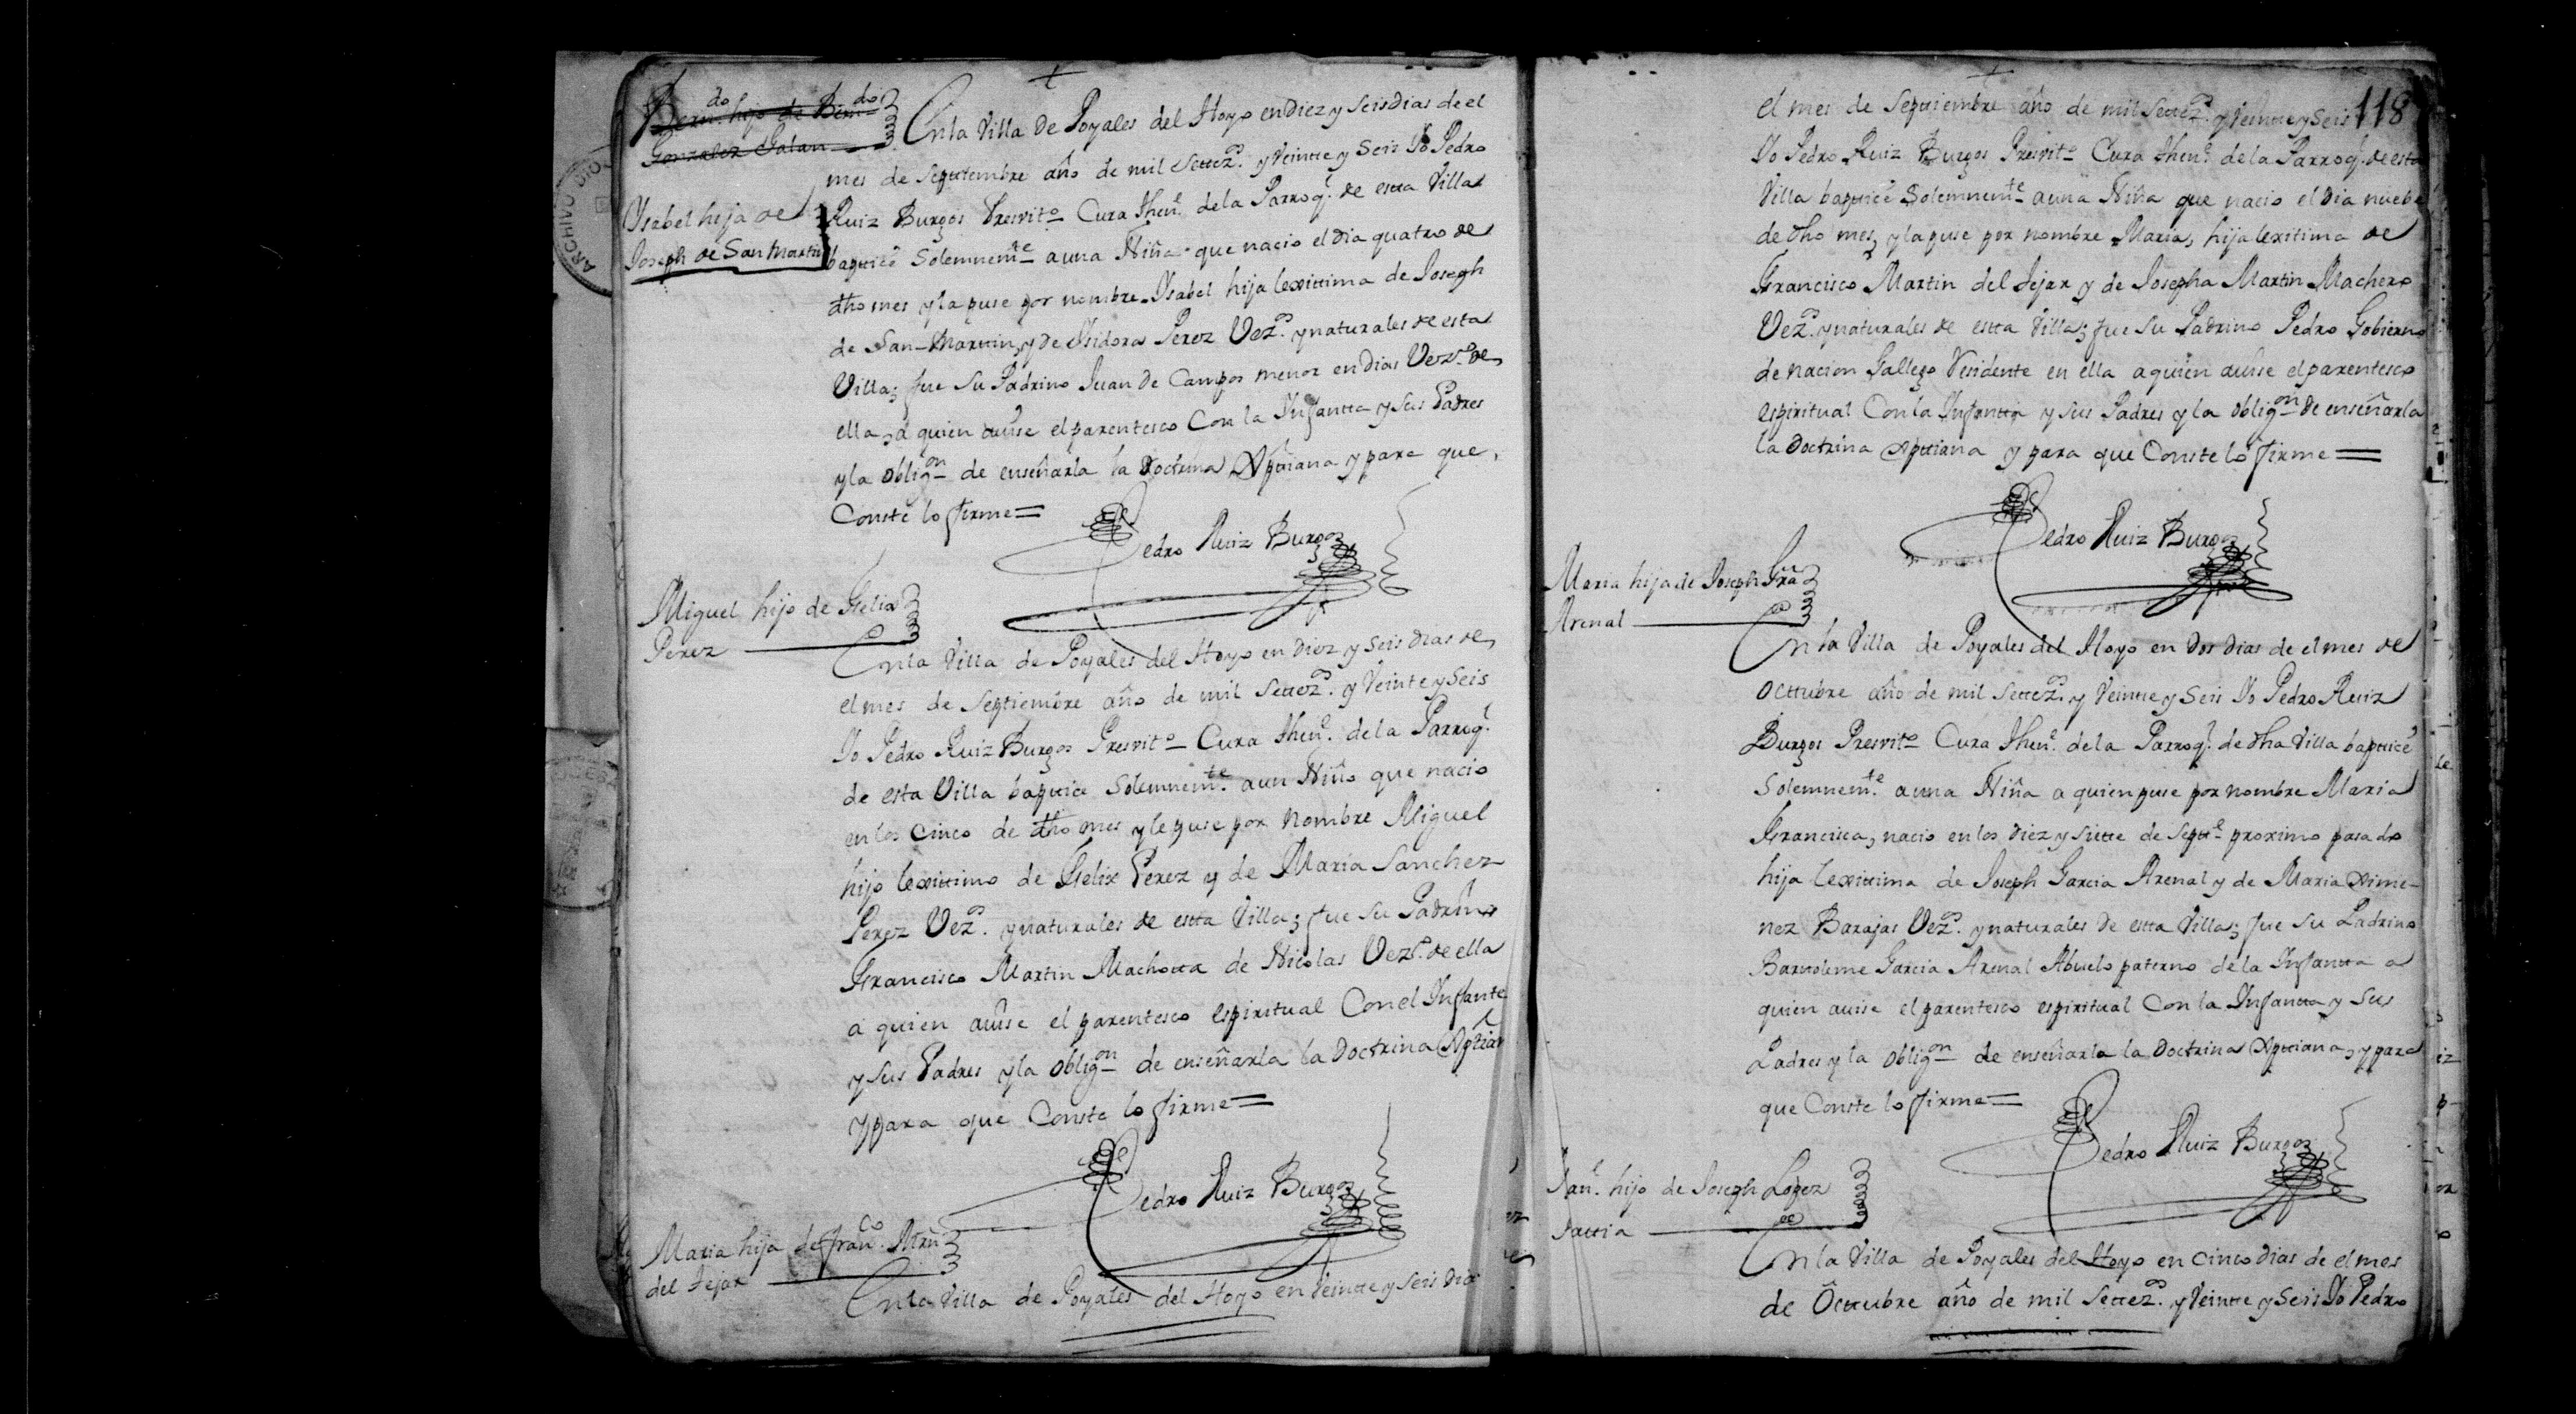 Bern.do hijo de Bern.do
Gonzalez Galan
Ysabel hija de
Joseph de San Martin
En la Villa de Poyales del Hoyo en diez y seis dias de el
mes de Septiembre año de mil settez.os y Veintte y Seis Yo Pedro
Ruiz Burgos Presvit.o Cura Then.e de la Parroq.l de esta Villa
baptice Solemnem.te a una Niña que nacio el dia quatro de
dho mes y la puse por nombre Ysabel hija lexittima de Joseph
de San-Marttin, y de Ysidora Perez Vez.os y naturales de esta
Villa; fue su Padrino Juan de Campos menor en dias Vez.o de
ella, a quien avise el parentesco Con la Infantta y sus Padres
y la oblig.on de enseñarla la Doctrina Xpttiana y para que
Conste lo firme=
Pedro Ruiz Burgos
Miguel hijo de Felix
Perez
En la Villa de Poyales del Hoyo en diez y seis dias de
el mes de Septiembre año de mil settez.os y Veinte y Seis
Yo Pedro Ruiz Burgos Presvit.o Cura Then.e de la Parroq.l
de esta Villa baptice Solemnem.te a un Niño que nacio
en los cinco de dho mes y le puse por Nombre Miguel
hijo lexittimo de Felix Perez y de Maria Sanchez
Perez Vez.os y naturales de esta Villa; fue su Padrino
Francisco Martin Machotta de Nicolas Vez.o de ella
a quien avise el parentesco espiritual Con el Infante
y sus Padres y la oblig.on de enseñarla la Doctrina Xptian
y para que Conste lo firme=
Pedro Ruiz Burgos
Maria hija de Fran.co Mrn
del Tejar
En la Villa de Poyales del Hoyo en Veintte y seis dias
118
el mes de Septiembre año de mil settez.os y Veintte y Seis
Yo Pedro Ruiz Burgos Presvit.o Cura Then.e de la Parroq.l de esta
Villa baptice Solemnem.te a una Niña que nacio el dia nuebe
de dho mes y la puse por nombre Maria, hija lexitima de
Francisco Martin del Tejar y de Josepha Martin Machero
Vez.os y naturales de estta Villa; fue su Padrino Pedro Gobierno
de nacion Gallego Residente en ella a quien avise el parentesco
espiritual Con la Infantta y sus Padres y la oblig.on de enseñarla
la Doctrina Xpttiana y para que Conste lo firme=
Pedro Ruiz Burgos
Maria hija de Joseph Gra
Arenal
En la Villa de Poyales del Hoyo en dos dias de el mes de
Octtubre año de mil settez.os y Veintte y Seis Yo Pedro Ruiz
Burgos Presvit.o Cura Then.e de la Parroq.l de dha Villa baptice
Solemnem.te a una Niña a quien puse por nombre Maria
Francisca, nacio en los diez y siette de Septt.e proximo pasado
hija lexittima de Joseph Garcia Arenal y de Maria Xime-
nez Barajas Vez.os y naturales de estta Villa; fue su Padrino
Bartolome Garcia Arenal Abuelo paterno de la Infantta a
quien avise el parentesco espiritual Con la Infantta y sus
Padres y la oblig.on de enseñarla la Doctrina Xpttiana, y para
que Conste lo firme=
Pedro Ruiz Burgos
hijo de Joseph Lopez
En la Villa de Poyales del Hoyo en cinco dias de el mes
de Octtubre año de mil Settez.os y Veintte y Seis Yo Pedro